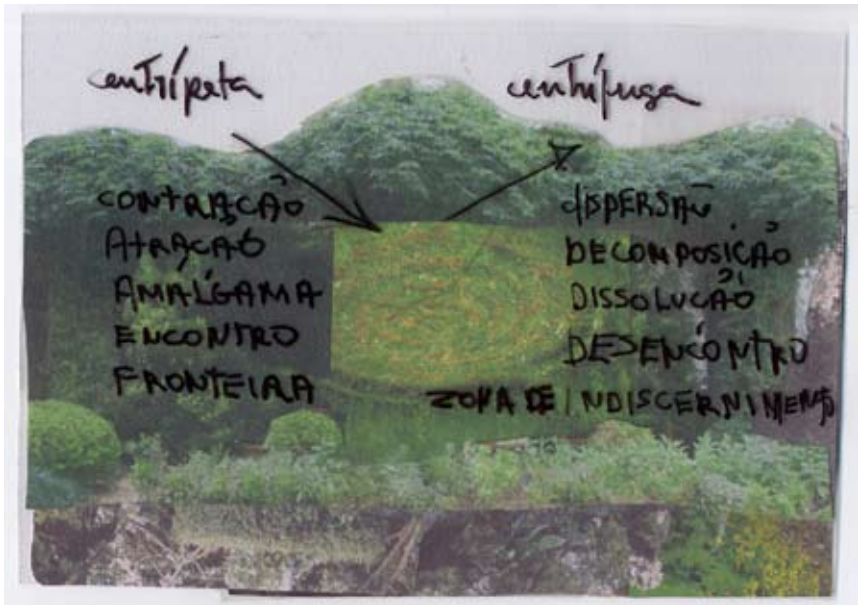 centrípeta
CONTRAÇÃO
ATRAÇÃO
AMÁLGAMA
ENCONTRO
FRONTEIRA
centrífuga
DISPERSÃO
DECOMPOSIÇÃO
DISSOLUÇÃO
DESENCONTRO
ZONA DE INDISCERNIMENTO